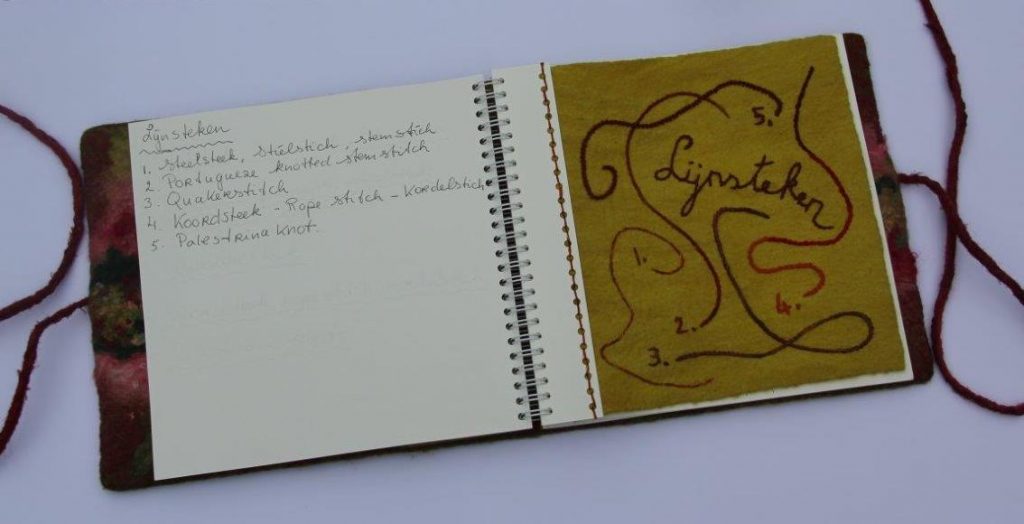 Lijnsteken
1. Steelsteek, stielstich, stemstich
2. Portugueze knotted stemstitch
3. Quakerstitch
4. Koordsteek - Rope stitch - Kordelstich
5. Palestrina Knot
5.
Lijnsteken
1.
4.
2.
3.